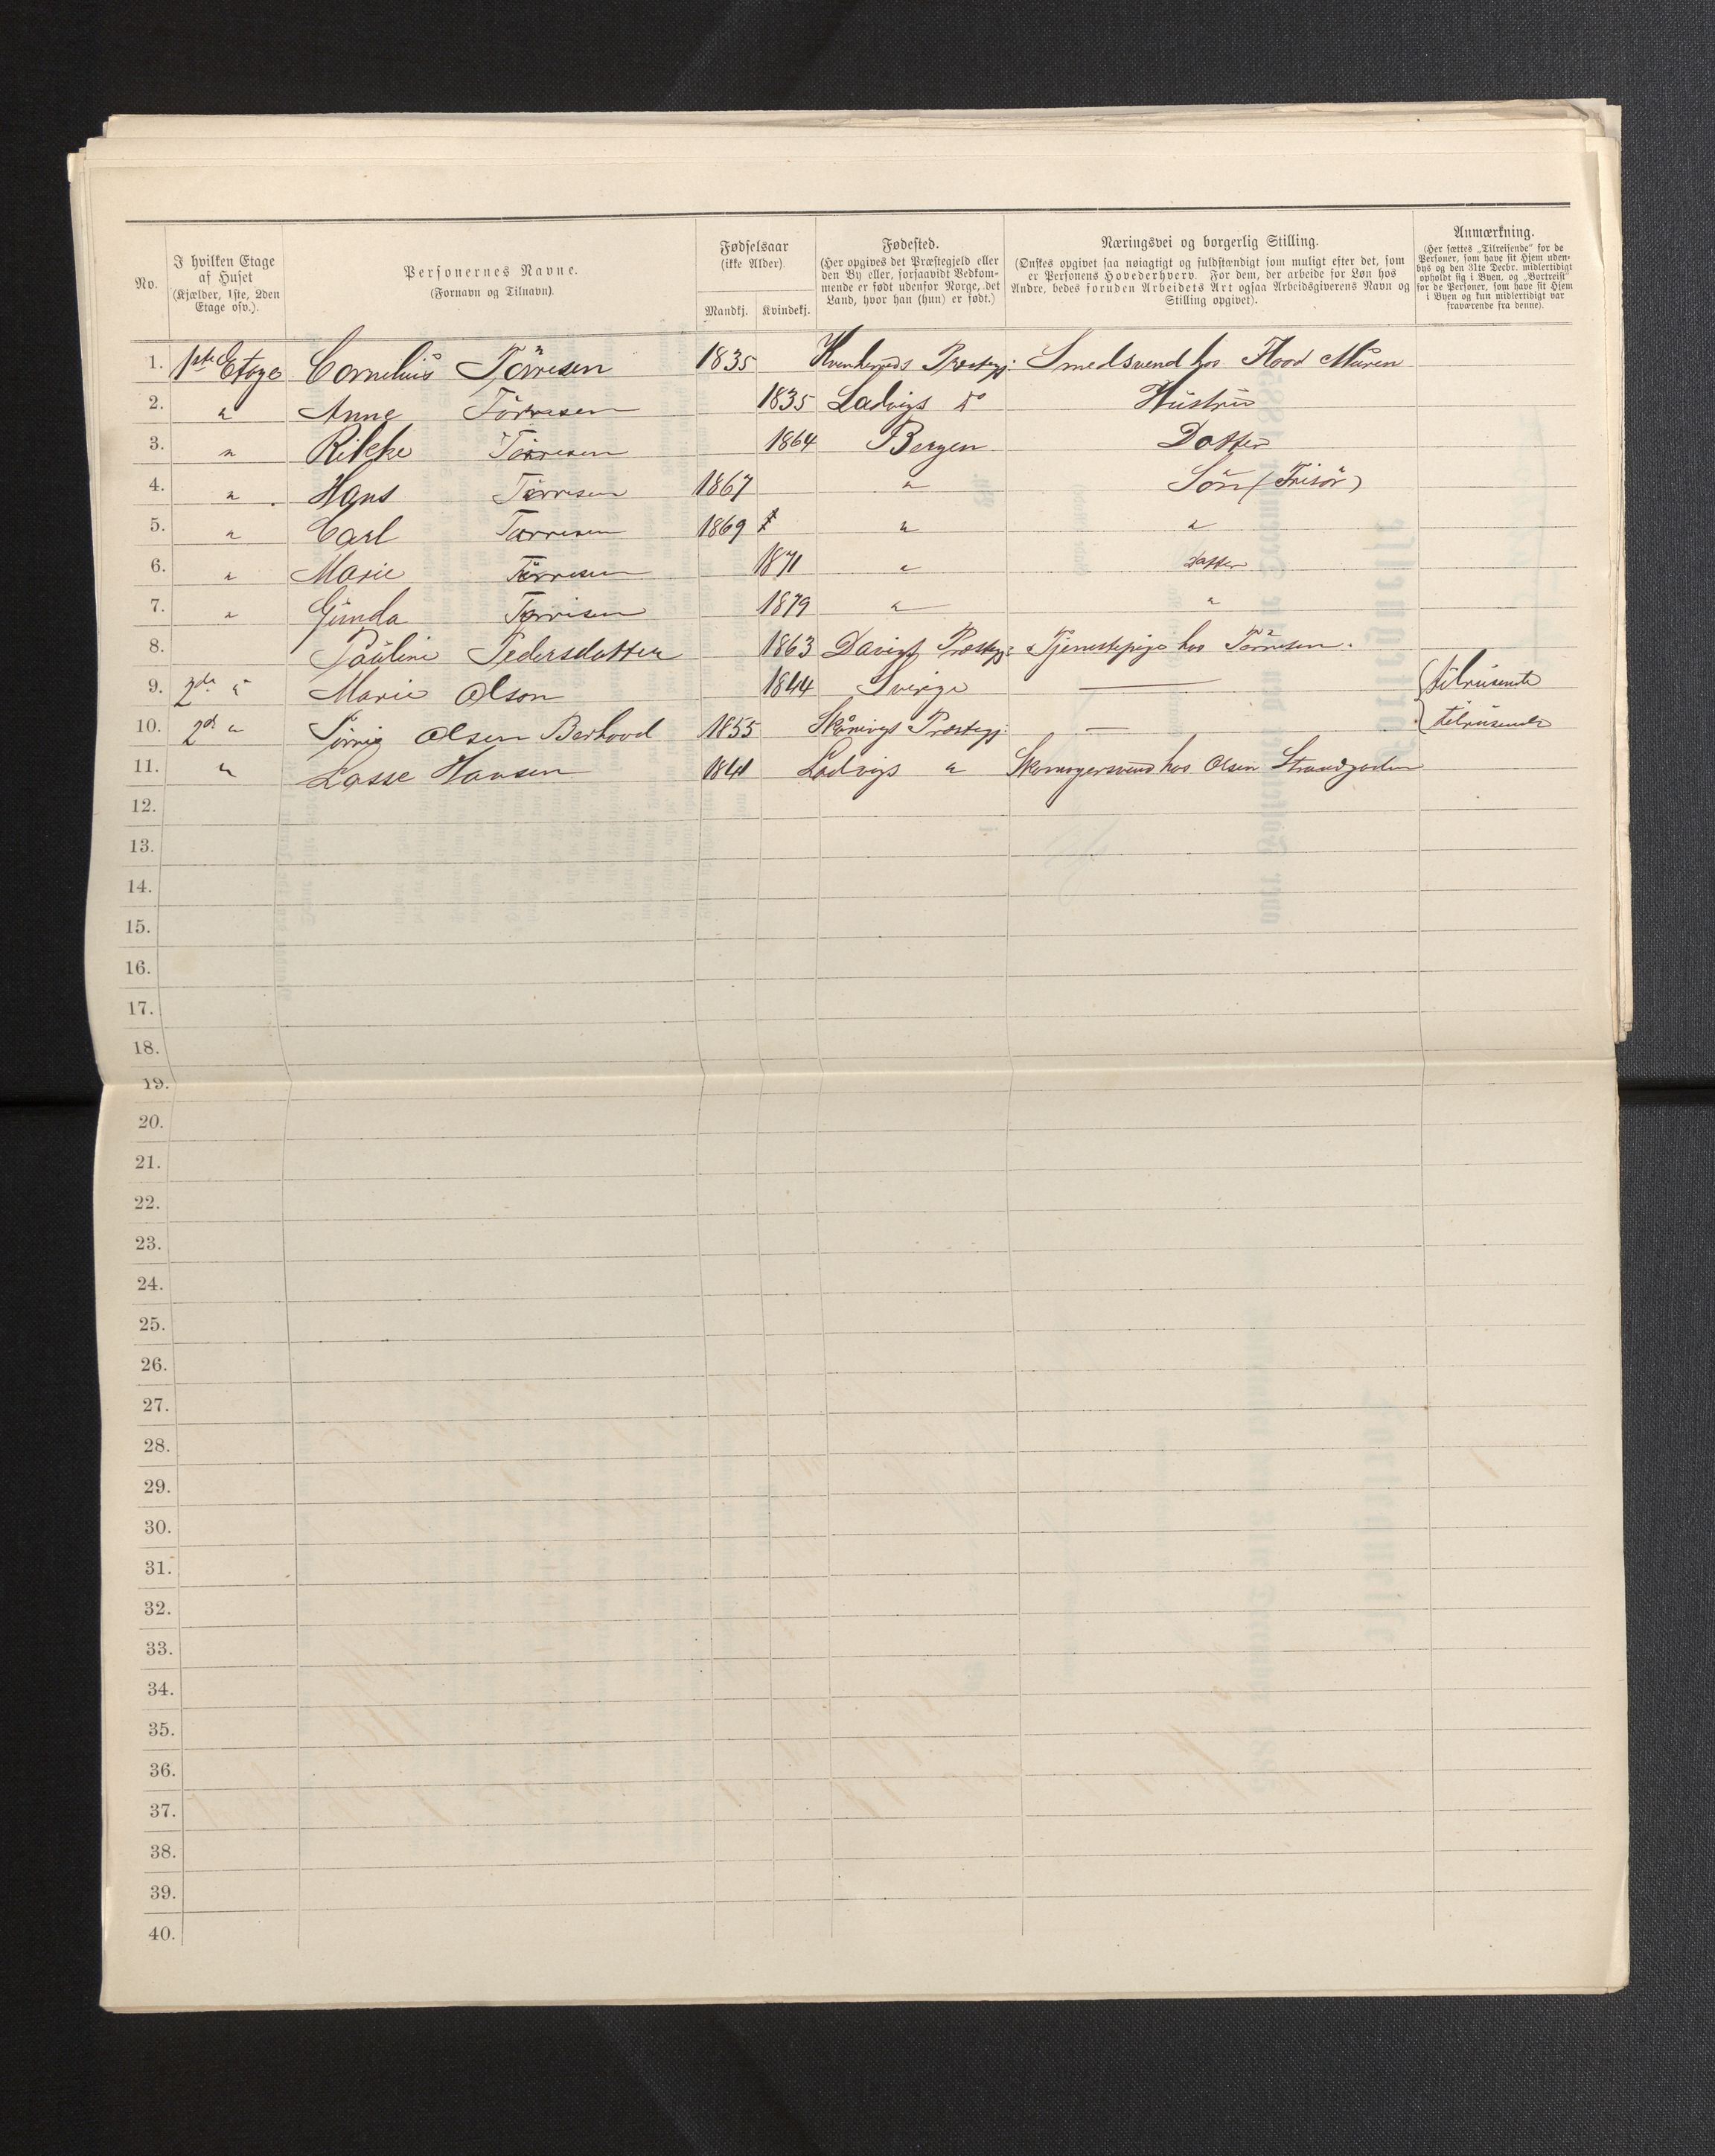 No.
I hvilken Etage
af Huset
(Kjælder, 1ste, 2den
Etage osv.).
Personernes Navne.
(Fornavn og Tilnavn).
Fødselsaar
(ikke Alder).
Mandkj. Kvindekj.
Fødested.
(Her opgives det Præstegjeld eller
den By eller, forsaavidt Vedkom-
mende er født udenfor Norge, det
Land, hvor han (hun) er født.)
Næringsvei og borgerlig Stilling.
(Ønskes opgivet saa nøiagtigt og fuldstændigt som muligt efter det, som
er Personens Hovederhverv. For dem, der arbeide for Løn hos
Andre, bedes foruden Arbeidets Art ogsaa Arbeidsgiverens Navn og
Stilling opgivet).
Anmærkning.
(Her sættes „Tilreisende" for de
Personer, som have sit Hjem uden-
bys og den 31te Decbr. midlertidigt
opholdt sig i Byen, og „Bortreist"
for de Personer, som have sit Hjem
i Byen og kun midlertidigt var
fraværende fra denne).
1. 1ste Etage Cornelius Törresen 1835 Præstegj: Smedsvend hos Flood Muren
2. " Anne Törresen 1835 Ladvigs do Hustru
3. " Rikke Törresen 1864 Bergen Datter
4. " Hans Törresen 1867 " Sön (Frisör)
5. " Carl Törresen 1869 " "
6. " Marie Törresen 1871 " Datter
7. " Gunda Törresen 1879 " "
8. Pauline Pedersdatter 1863 Præstegj: Tjenestepige hos Törresen.
9. 2de " Marie Olson 1844 Sverige — tilreisende
10. 2de " Olsen 1855 Præstegj: — tilreisende
11. " Lasse Hansen 1841 Ladvigs " Skomagersvend hos Olsen Strandgaden
12.
13.
14.
15.
16.
17.
18.
19.
20.
21.
22.
23.
24.
25.
26.
27.
28.
29.
30.
31.
32.
33.
34.
35.
36.
37.
38.
39.
40.